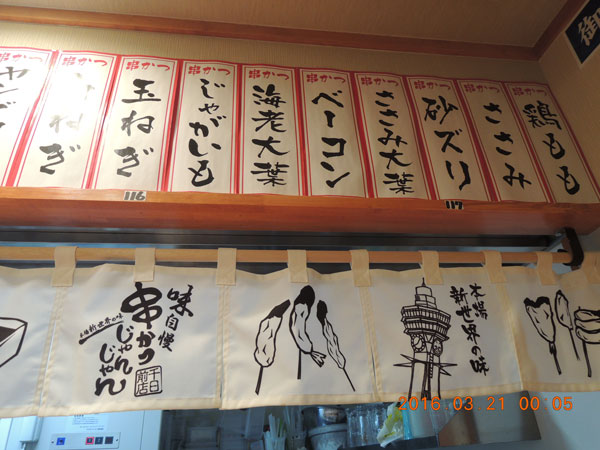 串かつ
串かつ
玉ねぎ
串かつ
じゃがいも
串かつ
海老大葉
串かつ
ベーコン
串かつ
ささみ大葉
串かつ
砂ズリ
串かつ
ささみ
串かつ
鶏もも
116
117
味自慢
串かつ
じゃんじゃん
千日前店
大阪新世界の味
大阪
新世界の味
2016.03.21 00:05